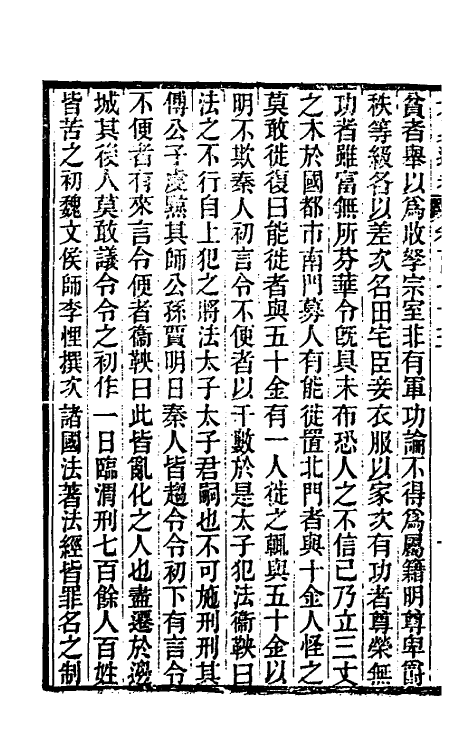 貧者舉以爲收孥宗室非有軍功論不得爲屬籍明尊卑爵
秩等級各以差次名田宅臣妾衣服以家次有功者尊榮無
功者雖富無所芬華令旣具未布恐人之不信己乃立三丈
之木於國都市南門募人有能徙置北門者與十金人怪之
莫敢徙復曰能徙者與五十金有一人徙之輒與五十金以
明不欺秦人初言令不便者以千數於是太子犯法衞鞅曰
法之不行自上犯之將法太子太子君嗣也不可施刑刑其
傅公子虔黥其師公孫賈明日秦人皆趨令令初下有言令
不便者有來言令便者衞鞅曰此皆亂化之人也盡遷於邊
城其後人莫敢議令令之初作一日臨渭刑七百餘人百姓
皆苦之初魏文侯師李悝撰次諸國法著法經皆罪名之制